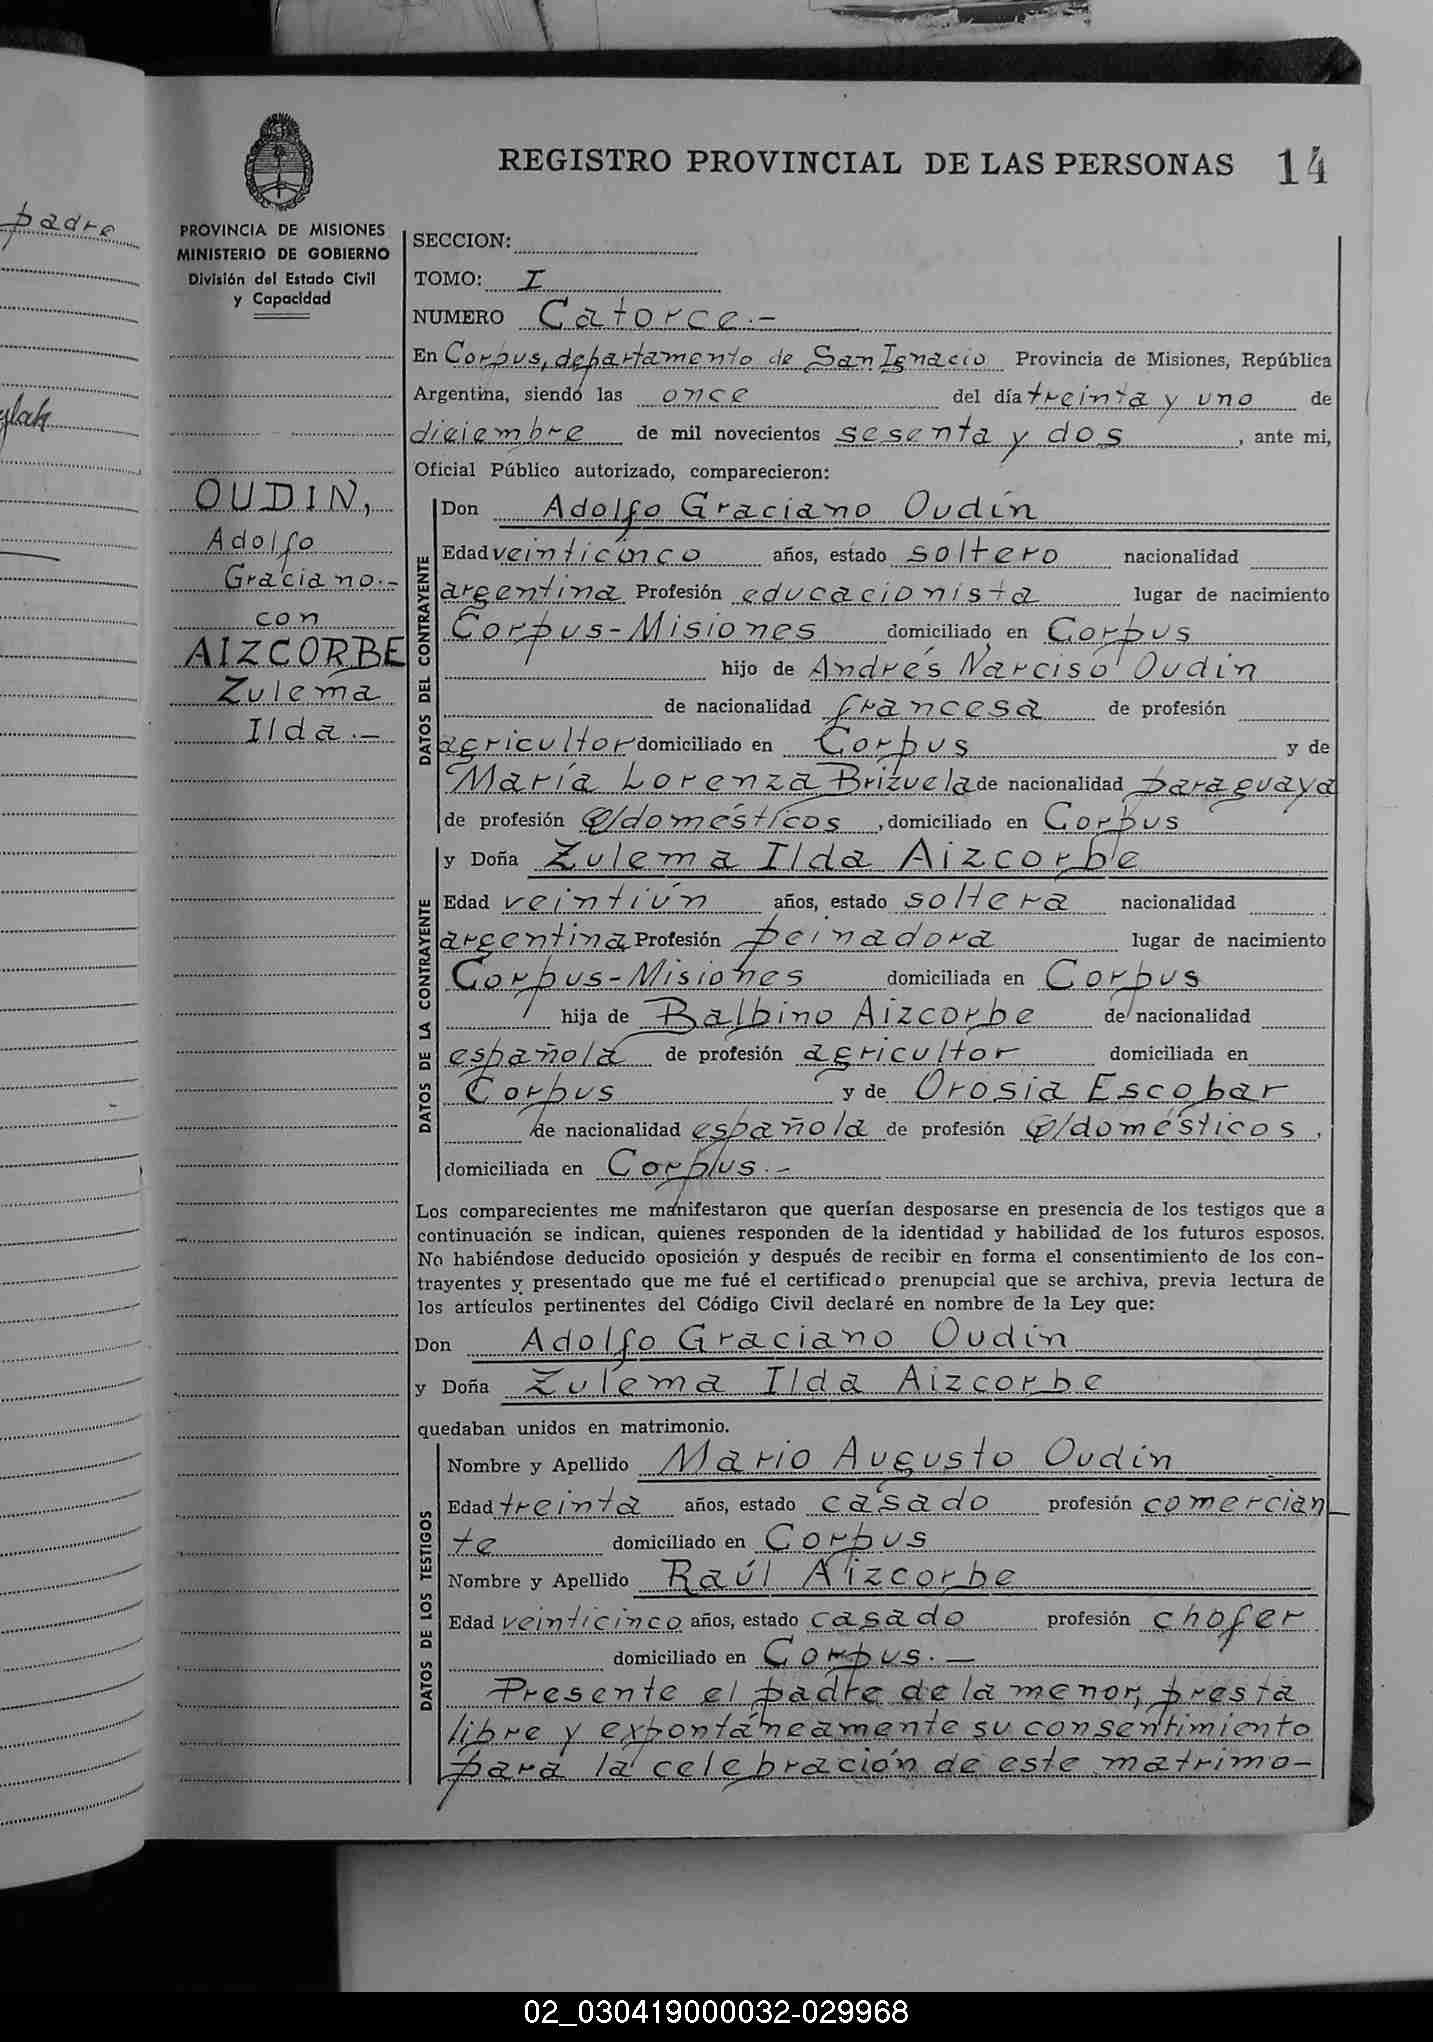 padre
REGISTRO PROVINCIAL DE LAS PERSONAS 14
PROVINCIA DE MISIONES
MINISTERIO DE GOBIERNO
División del Estado Civil
y Capacidad
OUDIN,
Adolfo
Graciano.-
con
AIZCORBE
Zulema
Ilda.-
SECCION:
TOMO: I
NUMERO Catorce.-
En Corpus, departamento de San Ignacio Provincia de Misiones, República
Argentina, siendo las once del día treinta y uno de
diciembre de mil novecientos sesenta y dos, ante mi,
Oficial Público autorizado, comparecieron:
DATOS DEL CONTRAYENTE
Don Adolfo Graciano Oudin
Edad veinticinco años, estado soltero nacionalidad
argentina Profesión educacionista lugar de nacimiento
Corpus-Misiones domiciliado en Corpus
hijo de Andrés Narciso Oudin
de nacionalidad francesa de profesión
agricultor domiciliado en Corpus y de
María Lorenza Brizuela de nacionalidad paraguaya
de profesión Q/domésticos, domiciliado en Corpus
DATOS DE LA CONTRAYENTE
y Doña Zulema Ilda Aizcorbe
Edad veintiún años, estado soltera nacionalidad
argentina Profesión peinadora lugar de nacimiento
Corpus-Misiones domiciliada en Corpus
hija de Balbino Aizcorbe de nacionalidad
española de profesión agricultor domiciliada en
Corpus y de Orosia Escobar
de nacionalidad española de profesión Q/domésticos,
domiciliada en Corpus.-
Los comparecientes me manifestaron que querían desposarse en presencia de los testigos que a
continuación se indican, quienes responden de la identidad y habilidad de los futuros esposos.
No habiéndose deducido oposición y después de recibir en forma el consentimiento de los con-
trayentes y presentado que me fué el certificado prenupcial que se archiva, previa lectura de
los artículos pertinentes del Código Civil declaré en nombre de la Ley que:
Don Adolfo Graciano Oudin
y Doña Zulema Ilda Aizcorbe
quedaban unidos en matrimonio.
DATOS DE LOS TESTIGOS
Nombre y Apellido Mario Augusto Oudin
Edad treinta años, estado casado profesión comercian-
te domiciliado en Corpus
Nombre y Apellido Raúl Aizcorbe
Edad veinticinco años, estado casado profesión chofer
domiciliado en Corpus.-
Presente el padre de la menor, presta
libre y expontáneamente su consentimiento
para la celebración de este matrimo-
02_030419000032-029968